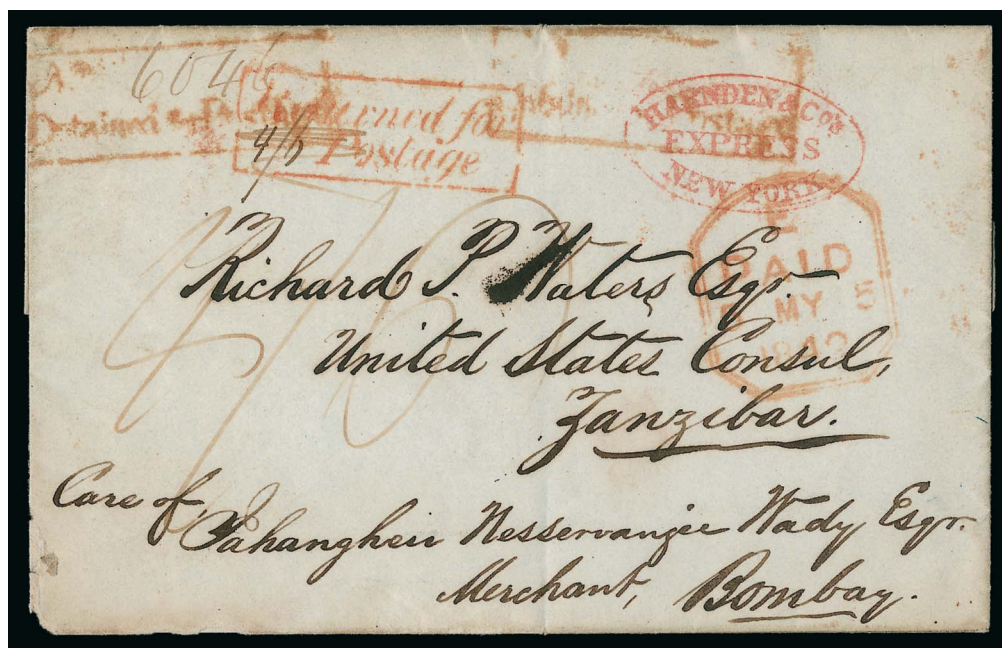 6046
Returned for
Postage
4/6
HARNDEN & CO'S
EXPRESS
NEW YORK
PAID
MY 5
1842
Richard P. Waters Esqr.
United States Consul,
Zanzibar.
Care of
Jahangheir Nesservanjee Wady Esqr.
Merchant, Bombay.